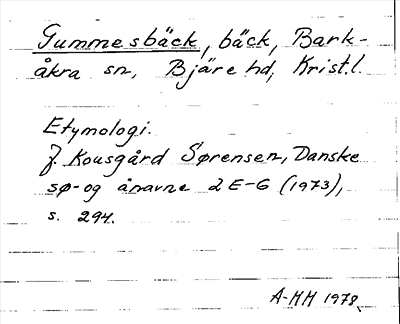 Gummesbäck, bäck, Bark-
åkra sn, Bjäre hd, Krist.l.
Etymologi.
J. Kousgård Sørensen, Danske
sø- og ånavne 2 E-G (1973),
s. 294.
A-HH 1978